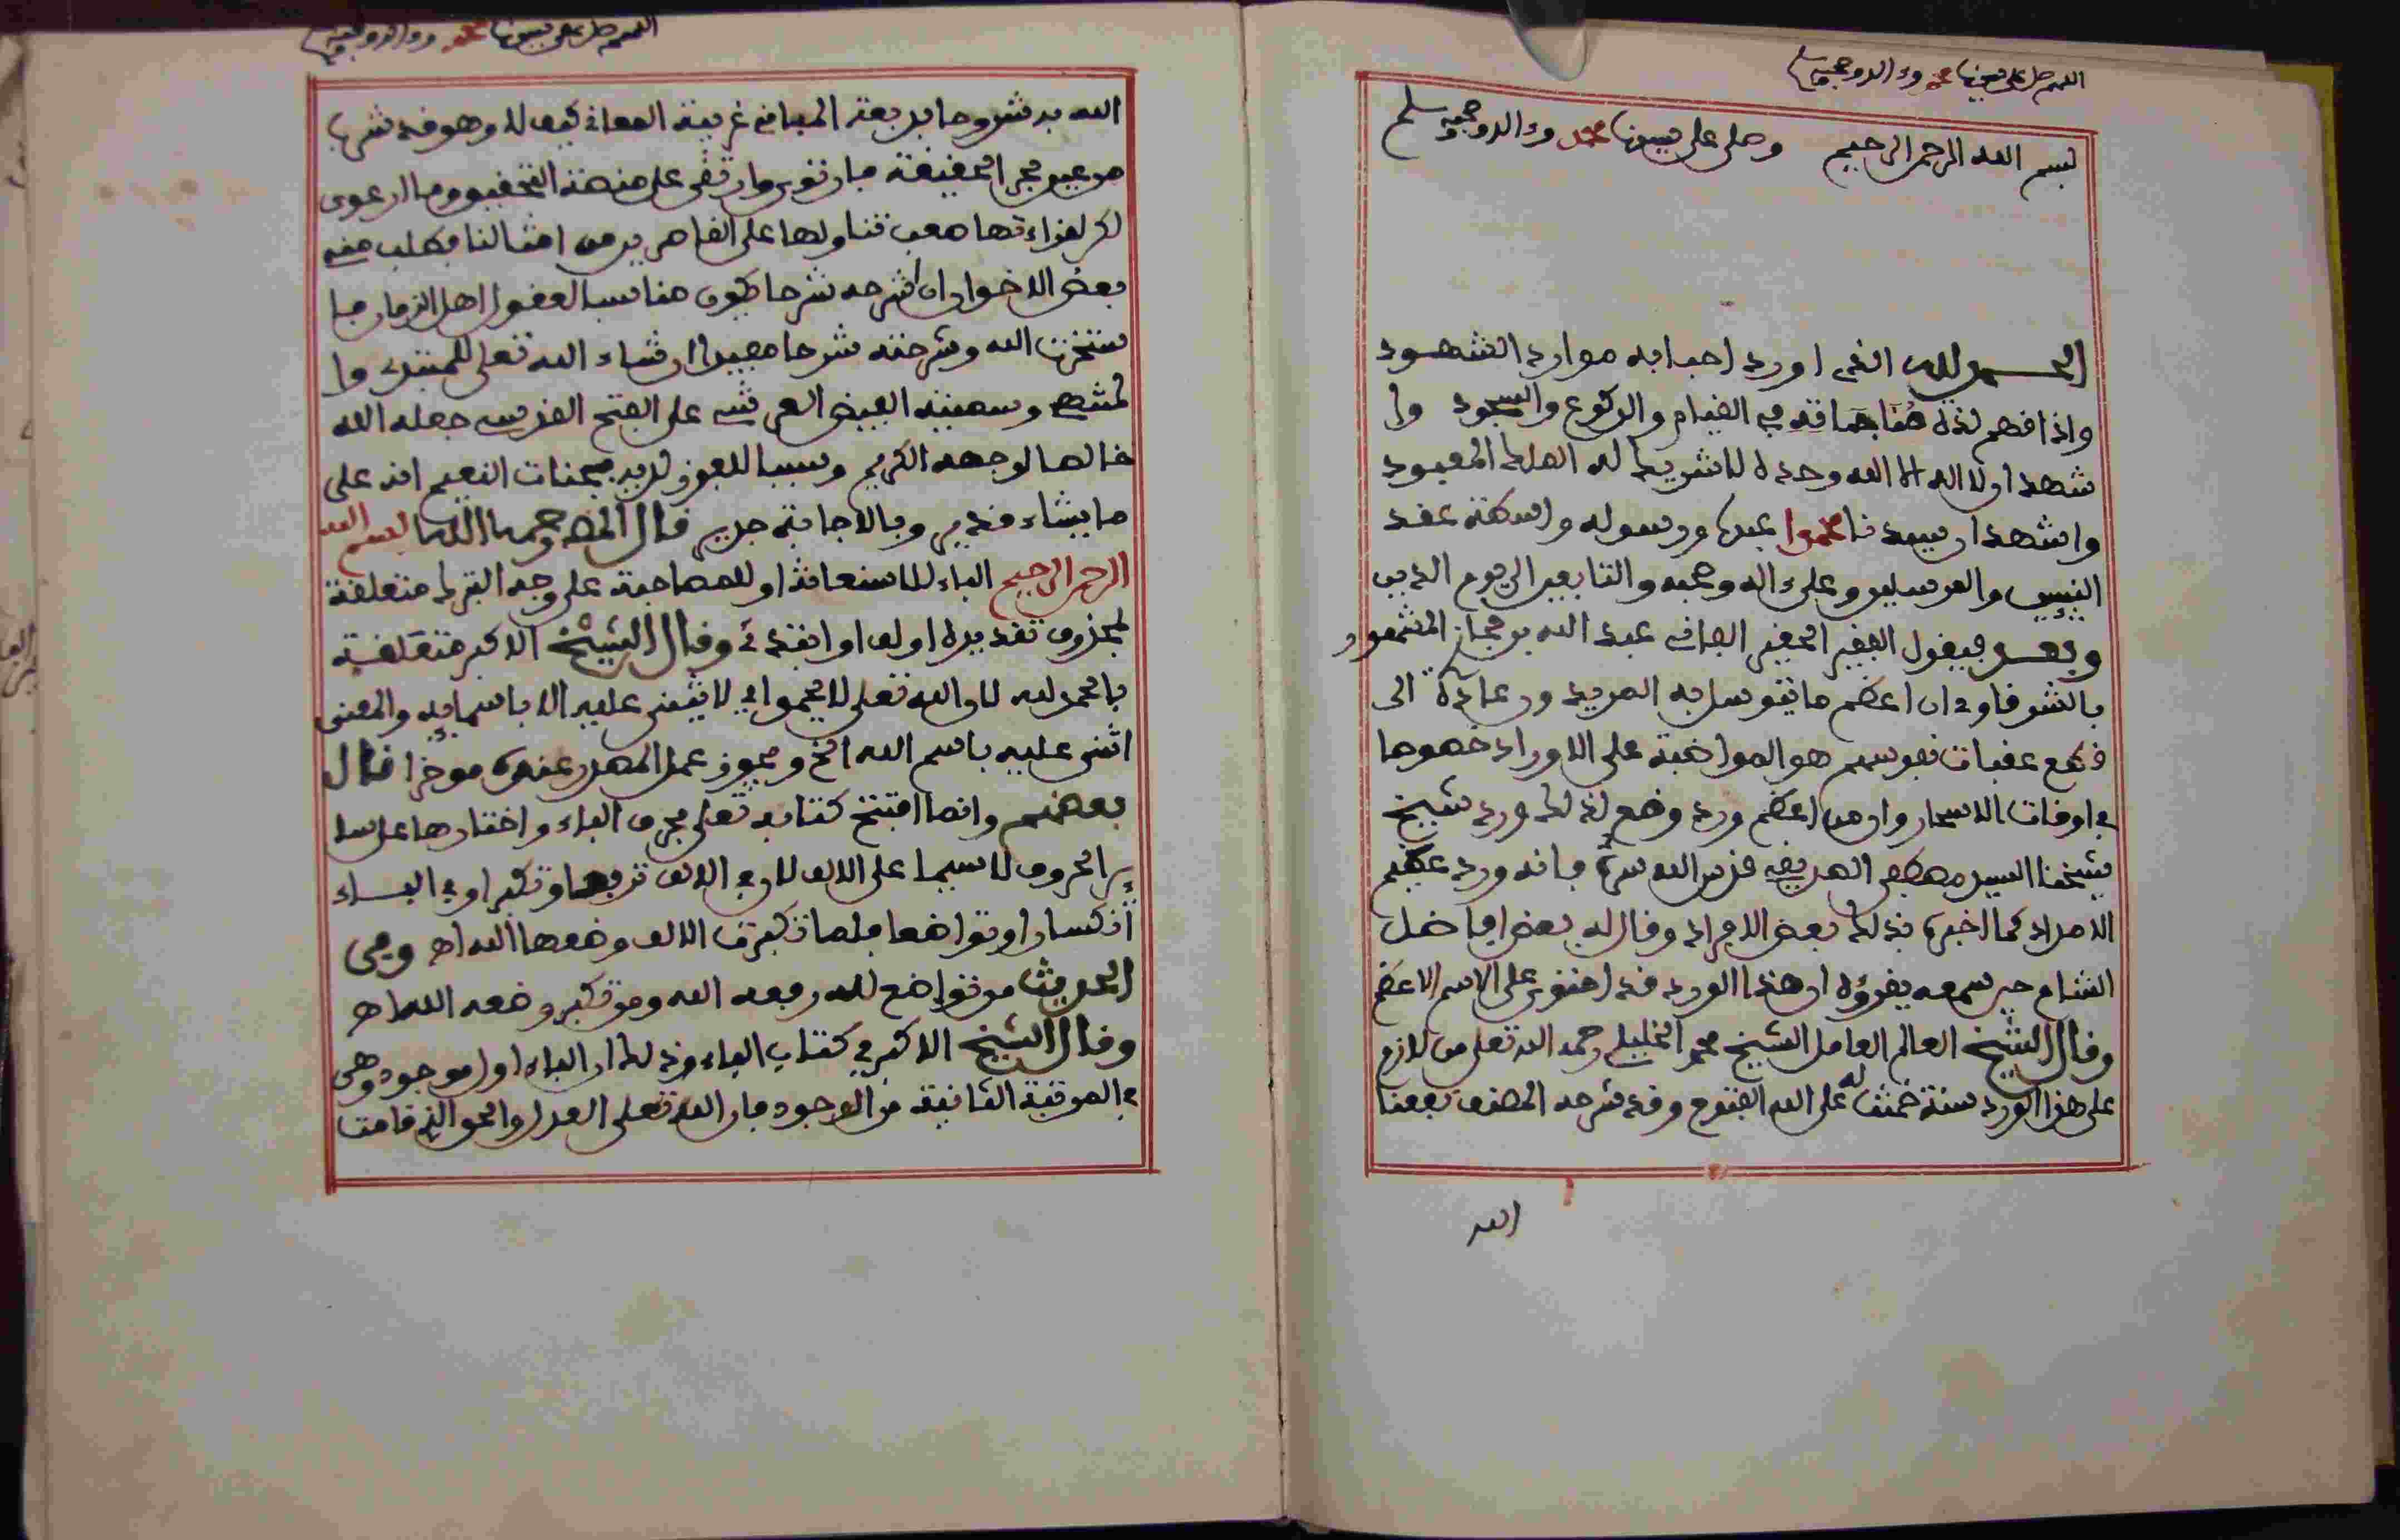 اللهم صل على سيدنا محمد وءاله وصحبه وسلم
بسم الله الرحمن الرحيم وصلى على سيدنا محمد وءاله وصحبه وسلم
الحمد لله الذي اورد احبابه موارد الشهود
واذاقهم لذة في القيام والركوع والسجود وا
شهد ان لا اله الا الله وحده لا شريك له الملك المعبود
واشهد ان سيدنا محمدا عبده ورسوله واسكة عقد
النبيين والمرسلين وعلى ءاله وصحبه والتابعين الى يوم الدين
وبعد فيقول الفقير الحقير الفاني عبد الله بن حجازي المشهور
بالشرقاوي ان اعظم ما يتوسل به المريد ورعاية الى
قطع عقبات نفوسهم هو المواظبة على الاوراد خصوصا
في اوقات الاسحار وان من اعظم ورد وضع لذلك ورد شيخ
شيخنا السيد مصطفى الصديقي قدس الله سره فانه ورد عظيم
الامداد كما اخبر بذلك بعض الافراد وقال له بعض افاضل
الشام حين سمعه يقرؤه ان هذا الورد قد احتوى على الاسم الاعظم
وقال الشيخ العالم العامل الشيخ محمد الخليلي رحمه الله تعلى من لازم
على هذا الورد سنة ضمنت له على الله الفتوح وقد شرحه المصنف نفعنا
الله
اللهم صل على سيدنا محمد وءاله وصحبه
الله به شروحا بديعة المباني غريبة المعاني كيف لا وهو قد شربها
من عين بحر الحقيقة فارتوى وارتقى على منصة التحقيق وما ارعوى
لكن لغزاءتها صعب تناولها على القاصرين من امثالنا فطلب منه
بعض الاخوان ان اشرحه شرحا يكون مناسبا لعقول اهل الزمان فا
ستخرت الله وشرحته شرحا مفيدا ان شاء الله تعلى للمبتدي وا
لمنتهي وسميته الفيض العرشي على الفتح القدسي جعله الله
خالصا لوجهه الكريم وسببا للفوز لديه بجنات النعيم انه على
ما يشاء قدير وبالاجابة جدير قال المص رحمه الله بسم الله
الرحمن الرحيم الباء للاستعانة او للمصاحبة على وجه التبرك متعلقة
بمحذوف تقديره اولف او ابتدئ وقال الشيخ الاكبر متعلقة
بالحمد لله لان الله تعلى لا يحمد اي لا يثنى عليه الا باسمايه والمعنى
اثنى عليه باسم الله الخ ويجوز عمل المصدر عنده موخرا قال
بعضهم وانما افتتح كتابه تعلى بحرف الباء واختارها على سا
ير الحروف لا سيما على الالف لان في الالف ترفعا وتكبرا وفي الباء
انكسارا وتواضعا فلما تكبرت الالف وضعها الله اهـ وفي
الحديث من تواضع لله رفعه الله ومن تكبر وضعه الله اهـ
وقال الشيخ الاكبر في كتاب الباء وذلك ان الباء اول موجود وهي
في المرتبة الثانية من الوجود فان الله تعلى العدل والحق الذي قامت